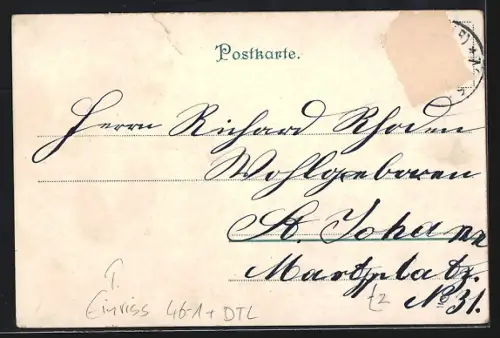 Postkarte.
Herrn Richard Rhoden
Wohlgeboren
St. Johann
Marktplatz
No 31.
Einriss 46-1 + DTL